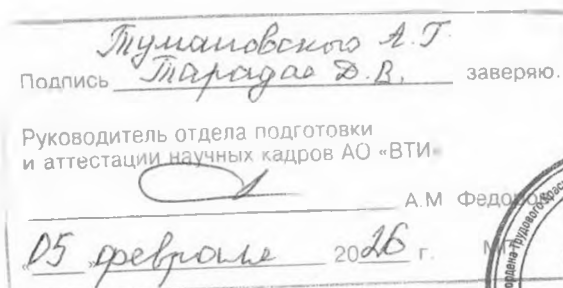 Тумановского А.Г.
Подпись Тарадая Д.В. заверяю.
Руководитель отдела подготовки
и аттестации научных кадров АО «ВТИ»
А.М Федоров
05 февраля 2026 г. М.П.
ордена Трудового Крас